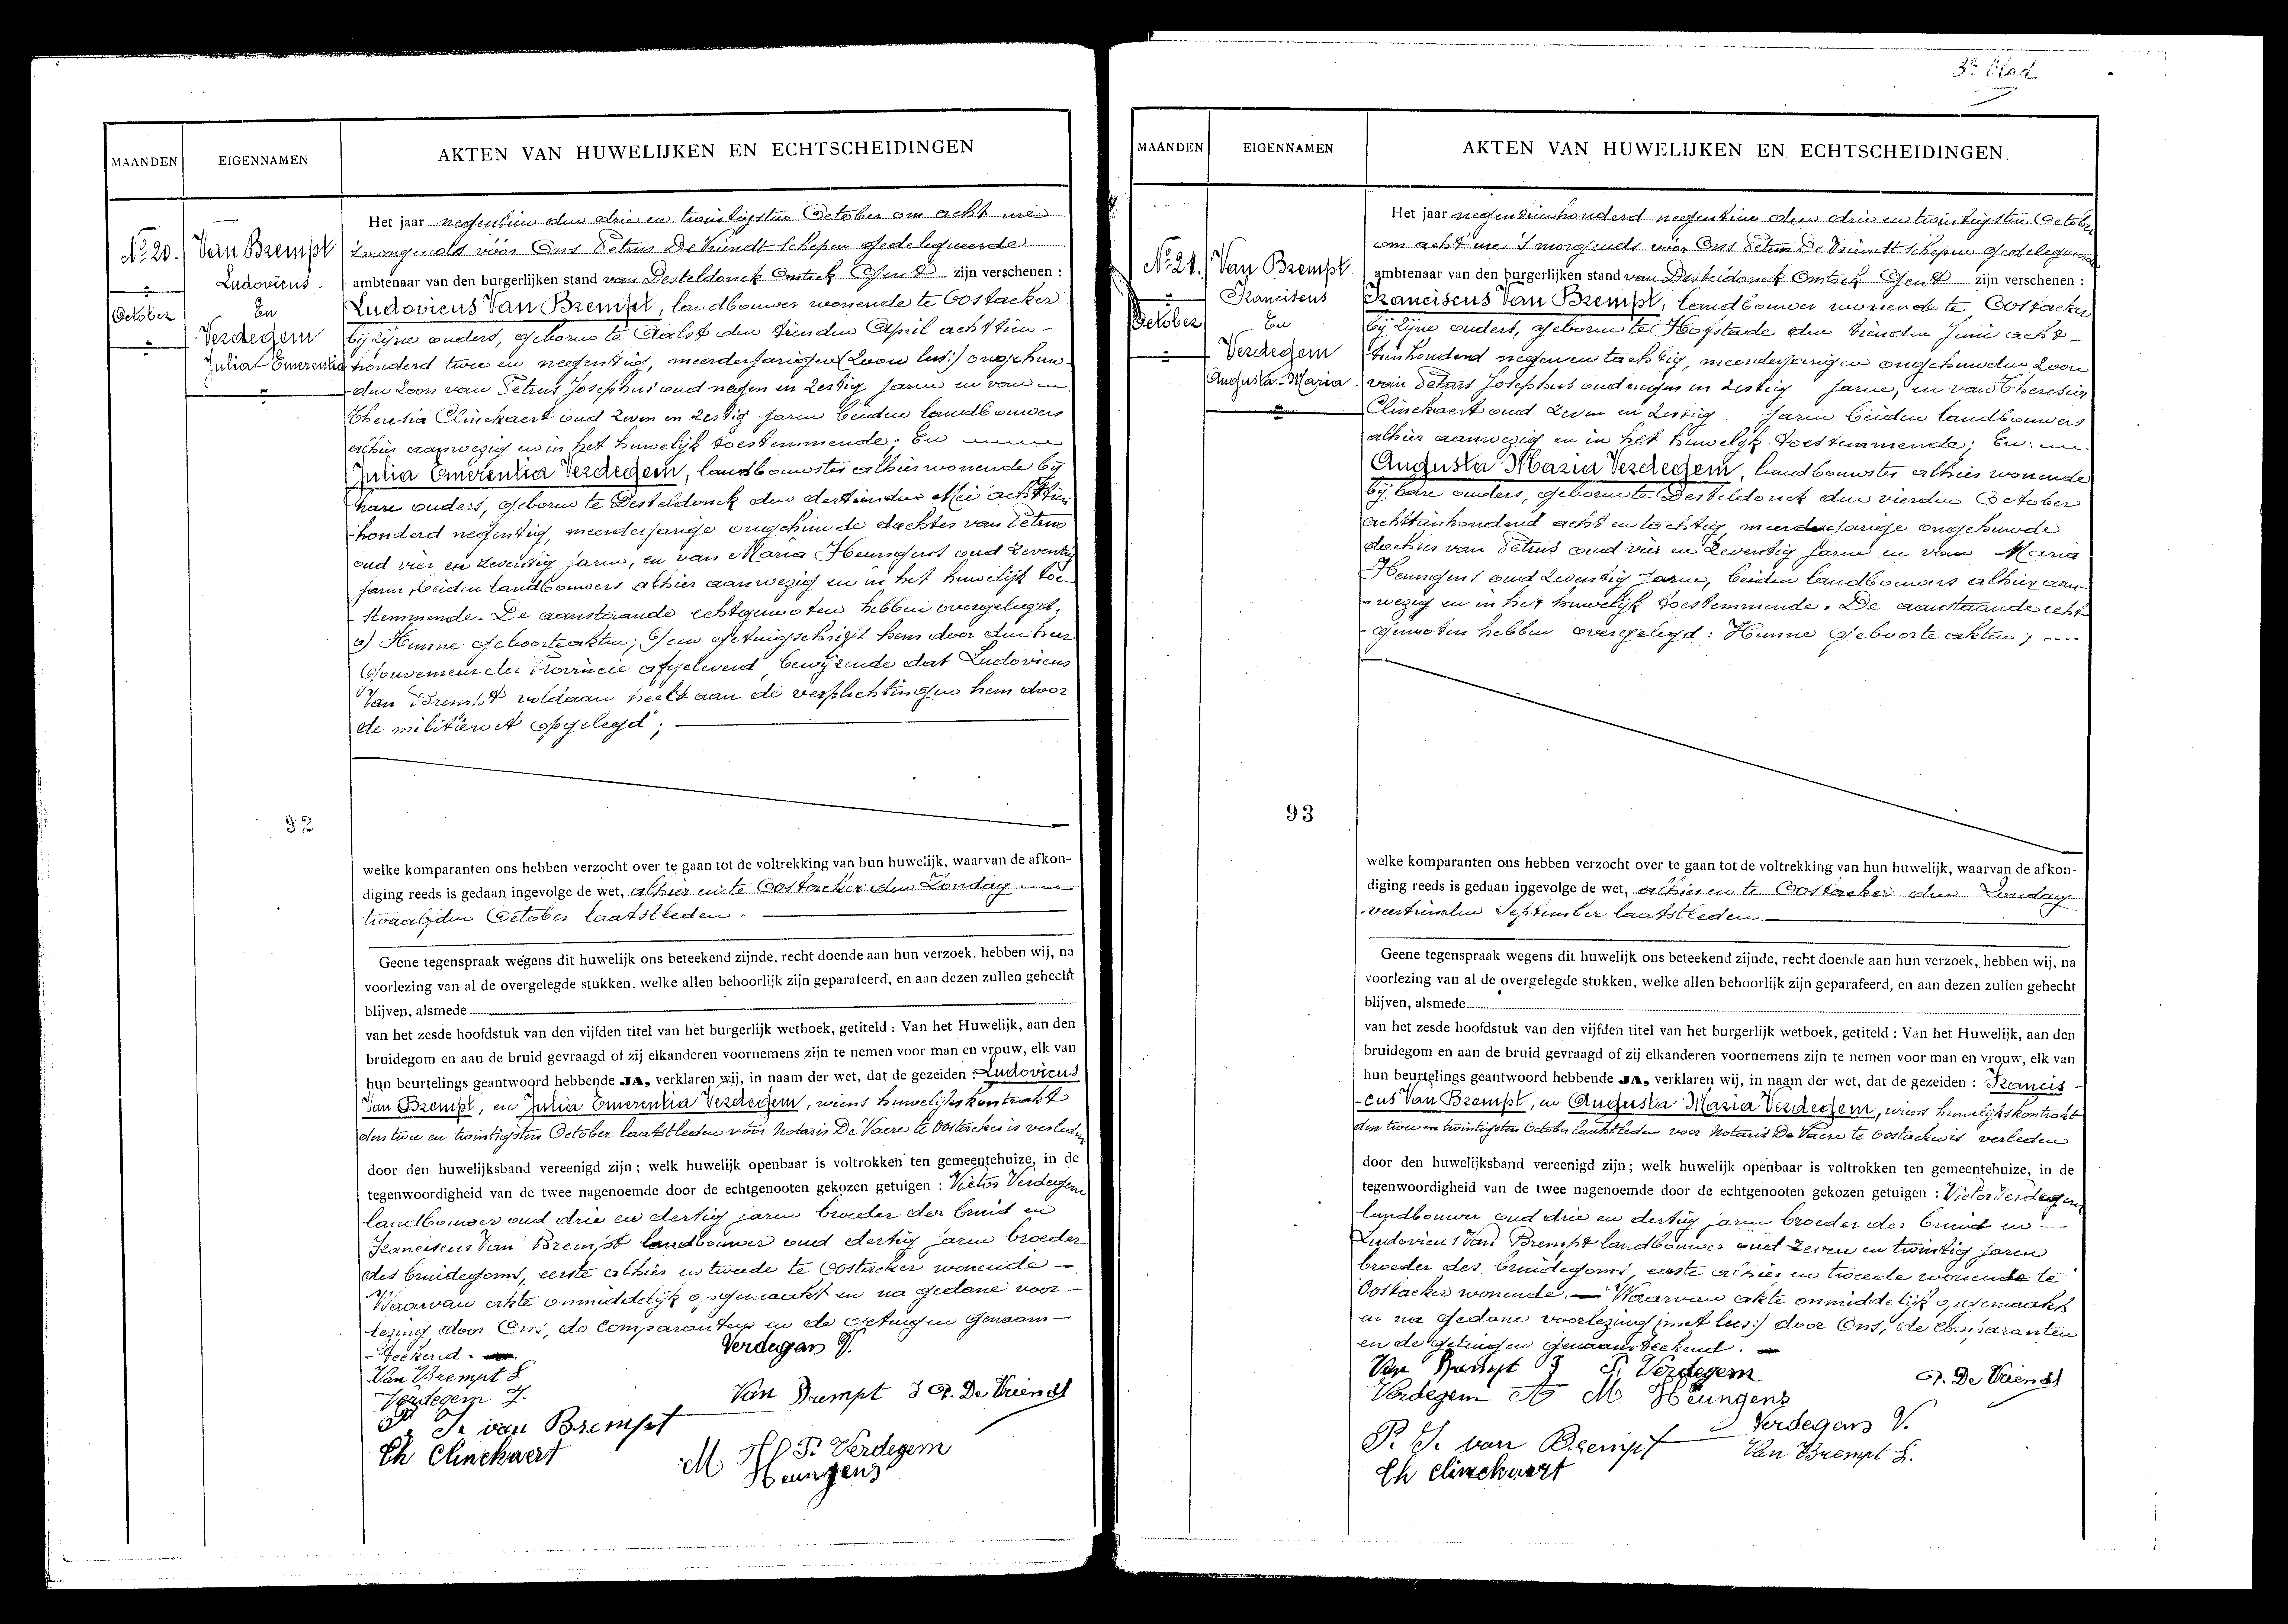 3e blad.
MAANDEN
EIGENNAMEN
AKTEN VAN HUWELIJKEN EN ECHTSCHEIDINGEN
No 20.
October
Van Brempt
Ludovicus.
En
Verdegem
Julia Emerentia
Het jaar negentien den drie en twintigsten October om acht ure
's morgends vóór Ons Petrus De Vriendt Schepen Gedelegueerde
ambtenaar van den burgerlijken stand van Desteldonck Omtrek Gent zijn verschenen :
Ludovicus Van Brempt, landbouwer wonende te Oostacker
bij zijne ouders, geboren te Aalst den tienden April achttien-
honderd twee en negentig, meerderjarigen (zoon lees:) ongehuw-
den zoon van Petrus Josephus oud negen en zestig jaren en van
Theresia Clinckaert oud zeven en zestig jaren beiden landbouwers
alhier aanwezig en in het huwelijk toestemmende. En
Julia Emerentia Verdegem, landbouwster alhier wonende bij
hare ouders, geboren te Desteldonck den dertienden Mei achttien
-honderd negentig, meerderjarige ongehuwde dochter van Petrus
oud vier en zeventig jaren, en van Maria Heungens oud zeventig
jaren, beiden landbouwers alhier aanwezig en in het huwelijk toe-
stemmende. De aanstaande echtgenooten hebben overgelegd,
a) Hunne geboorteakten; b) een getuigschrift hem door den heer
Gouverneur der Provincie afgeleverd, bewijzende dat Ludovicus
Van Brempt voldaan heeft aan de verplichtingen hem door
de militiewet opgelegd;
92
welke komparanten ons hebben verzocht over te gaan tot de voltrekking van hun huwelijk, waarvan de afkon-
diging reeds is gedaan ingevolge de wet, alhier en te Oostacker den Zondag
twaalfden October laatstleden.
Geene tegenspraak wegens dit huwelijk ons beteekend zijnde, recht doende aan hun verzoek, hebben wij, na
voorlezing van al de overgelegde stukken, welke allen behoorlijk zijn geparafeerd, en aan dezen zullen gehecht
blijven, alsmede
van het zesde hoofdstuk van den vijfden titel van het burgerlijk wetboek, getiteld : Van het Huwelijk, aan den
bruidegom en aan de bruid gevraagd of zij elkanderen voornemens zijn te nemen voor man en vrouw, elk van
hun beurtelings geantwoord hebbende JA, verklaren wij, in naam der wet, dat de gezeiden : Ludovicus
Van Brempt, en Julia Emerentia Verdegem, wiens huwelijkskontrakt
den twee en twintigsten October laatstleden voor Notaris De Vaere te Oostacker is verleden
door den huwelijksband vereenigd zijn ; welk huwelijk openbaar is voltrokken ten gemeentehuize, in de
tegenwoordigheid van de twee nagenoemde door de echtgenooten gekozen getuigen : Victor Verdegem
landbouwer oud drie en dertig jaren broeder der bruid en
Franciscus Van Brempt landbouwer oud dertig jaren broeder
des bruidegoms, eerste alhier en tweede te Oostacker wonende —
Waarvan akte onmiddelijk opgemaakt en na gedane voor-
lezing door Ons, de Comparanten en de Getuigen genaam-
-teekend.
Van Brempt L
Verdegem J.
P. J. van Brempt
Th Clinckaert
Verdegem V.
Van Brempt F P. De Vriendt
P. Verdegem
M Heungens
MAANDEN
EIGENNAMEN
AKTEN VAN HUWELIJKEN EN ECHTSCHEIDINGEN
No 21.
October
Van Brempt
Franciscus
En
Verdegem
Augusta-Maria.
Het jaar negentienhonderd negentien den drie en twintigsten October
om acht ure 's morgends vóór Ons Petrus De Vriendt Schepen Gedelegueerde
ambtenaar van den burgerlijken stand van Desteldonck Omtrek Gent zijn verschenen :
Franciscus Van Brempt, landbouwer wonende te Oostacker
bij zijne ouders, geboren te Hofstade den tienden Juni acht-
tienhonderd negen en tachtig, meerderjarigen ongehuwden zoon
van Petrus Josephus oud negen en zestig jaren, en van Theresia
Clinckaert oud zeven en zestig. jaren beiden landbouwers
alhier aanwezig en in het huwelijk toestemmende; En:
Augusta Maria Verdegem, landbouwster alhier wonende
bij hare ouders, geboren te Desteldonck den vierden October
achttienhonderd acht en tachtig meerderjarige ongehuwde
dochter van Petrus oud vier en zeventig jaren en van Maria
Heungens oud zeventig jaren, beiden landbouwers alhier aan-
-wezig en in het huwelijk toestemmende. De aanstaande echt-
-genooten hebben overgelegd : Hunne geboorte akten; ----
93
welke komparanten ons hebben verzocht over te gaan tot de voltrekking van hun huwelijk, waarvan de afkon-
diging reeds is gedaan ingevolge de wet, alhier en te Oostacker den Zondag
veertienden September laatstleden.
Geene tegenspraak wegens dit huwelijk ons beteekend zijnde, recht doende aan hun verzoek, hebben wij, na
voorlezing van al de overgelegde stukken, welke allen behoorlijk zijn geparafeerd, en aan dezen zullen gehecht
blijven, alsmede
van het zesde hoofdstuk van den vijfden titel van het burgerlijk wetboek, getiteld : Van het Huwelijk, aan den
bruidegom en aan de bruid gevraagd of zij elkanderen voornemens zijn te nemen voor man en vrouw, elk van
hun beurtelings geantwoord hebbende JA, verklaren wij, in naam der wet, dat de gezeiden : Francis-
-cus Van Brempt, en Augusta Maria Verdegem, wiens huwelijkskontrakt
den twee en twintigsten October laatstleden voor Notaris De Vaere te Oostacker is verleden
door den huwelijksband vereenigd zijn ; welk huwelijk openbaar is voltrokken ten gemeentehuize, in de
tegenwoordigheid van de twee nagenoemde door de echtgenooten gekozen getuigen : Victor Verdegem
landbouwer oud drie en dertig jaren broeder der bruid en —
Ludovicus Van Brempt landbouwer oud zeven en twintig jaren
broeder des bruidegoms, eerste alhier en tweede wonende te
Oostacker wonende. — Waarvan akte onmiddelijk opgemaakt
en na gedane voorlezing (met lees:) door Ons, de Comparanten
en de getuigen genaamteekend. —
Van Brempt F P. Verdegem
P. De Vriendt
Verdegem A M Heungens
Verdegem V.
P. J. van Brempt
Van Brempt L.
Th Clinckaert